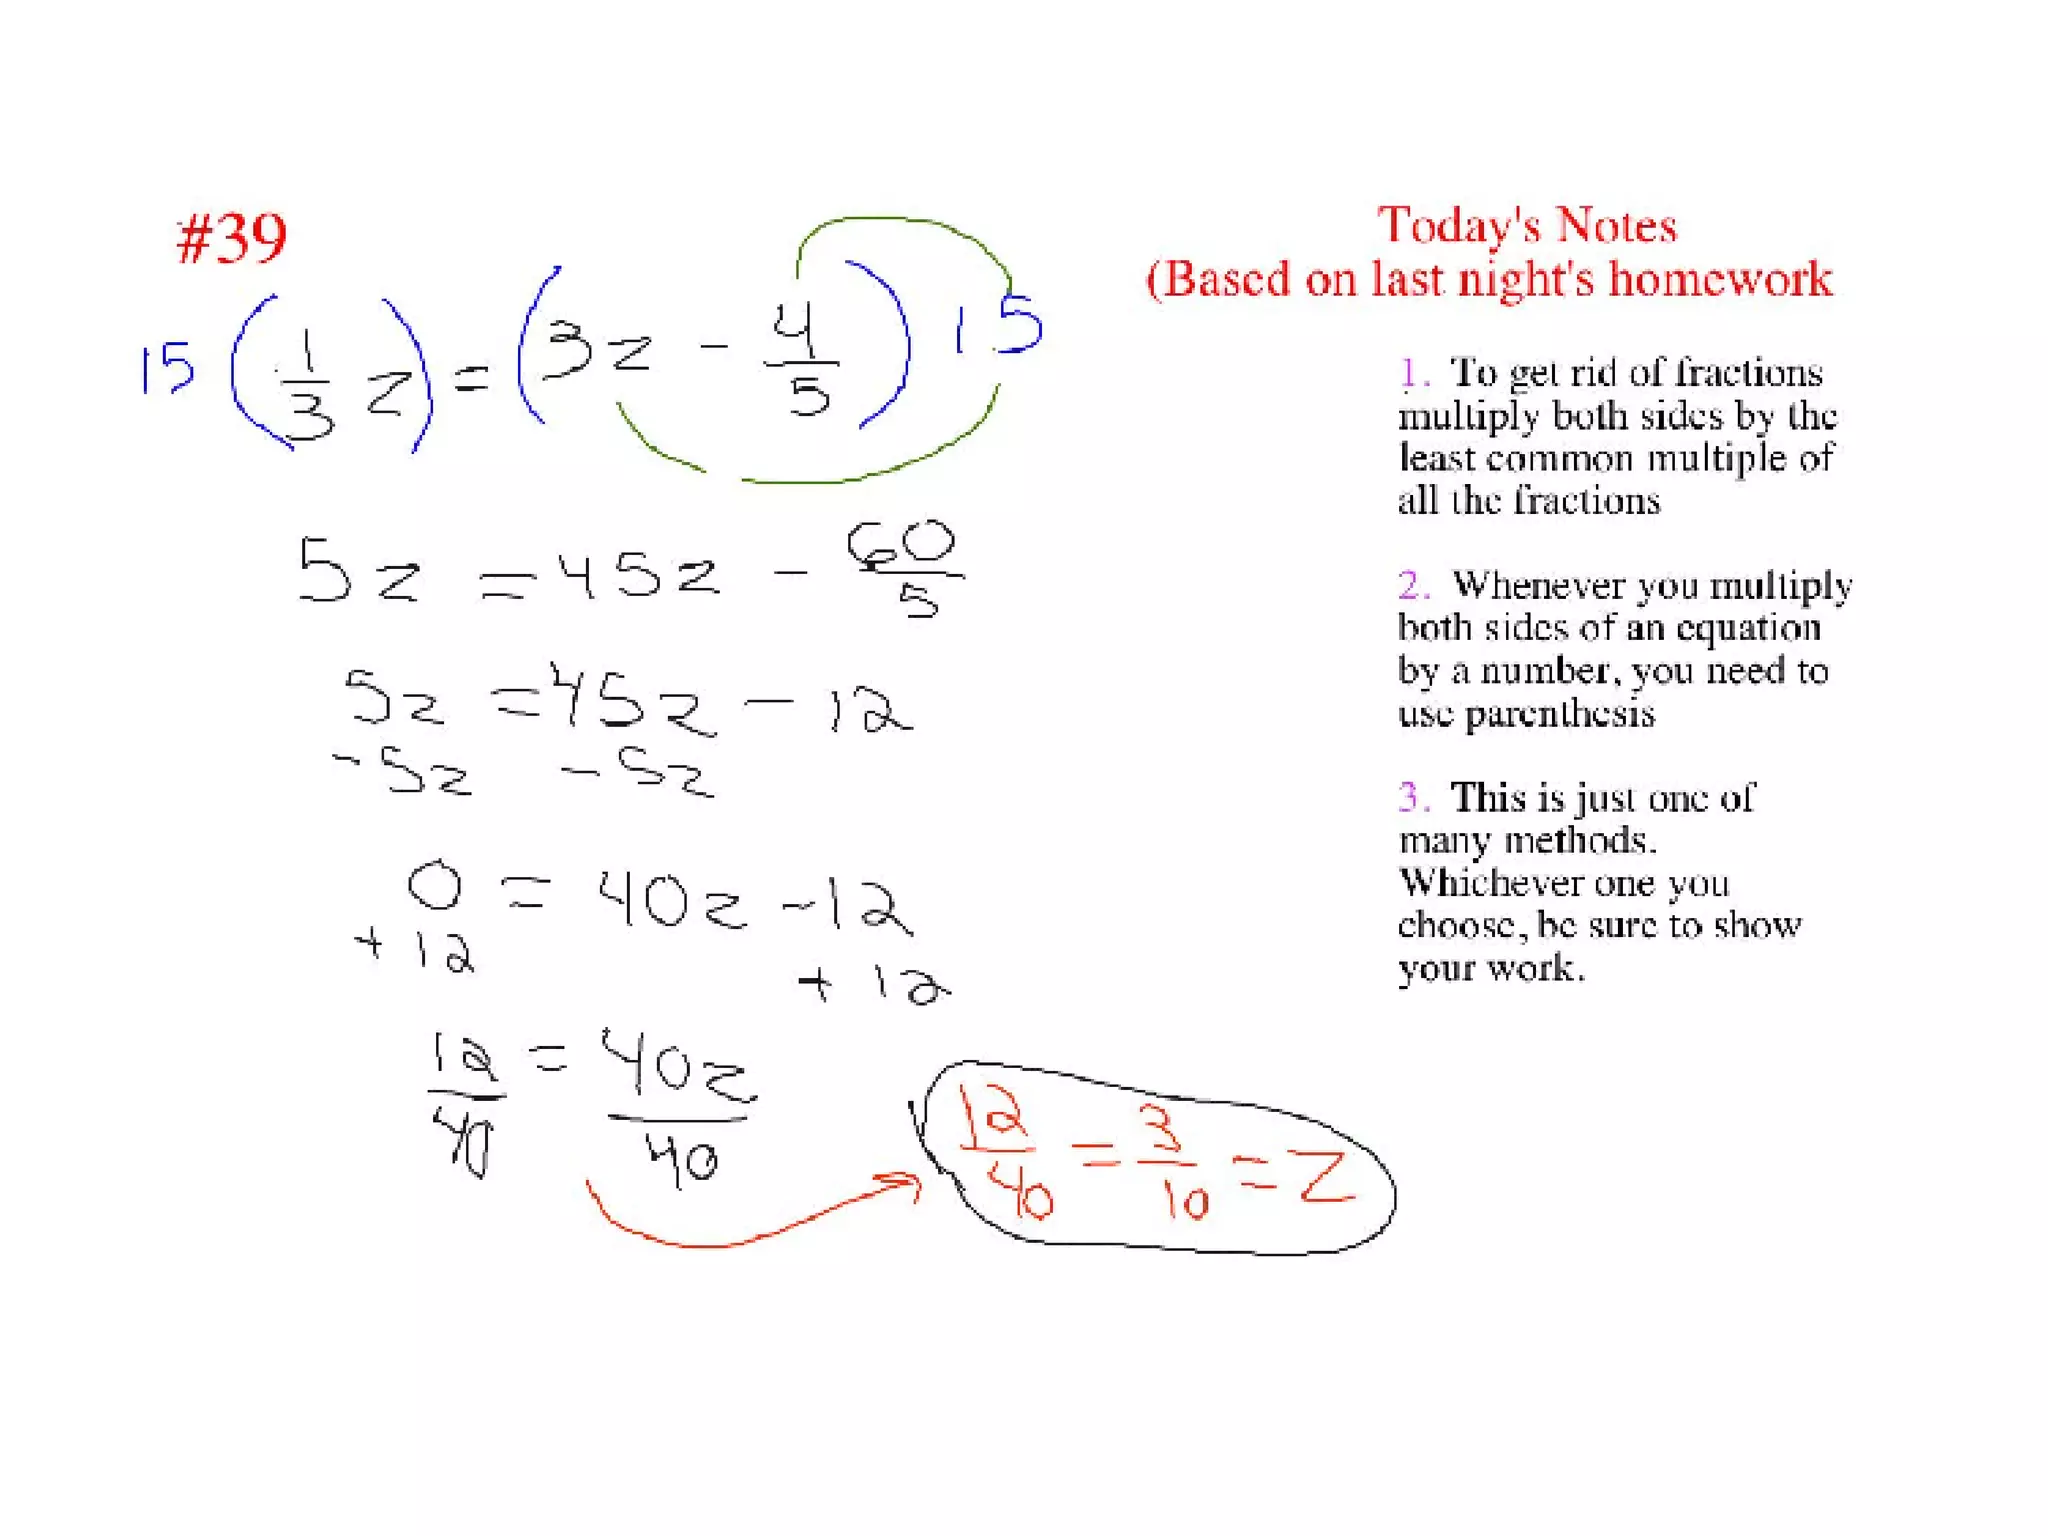 #39
15 ( 1/3 z ) = ( 3z - 4/5 ) 15
5z = 45z - 60/5
5z = 45z - 12
-5z -5z
0 = 40z - 12
+ 12 + 12
12/40 = 40z/40
12/40 = 3/10 = z
Today's Notes
(Based on last night's homework
1. To get rid of fractions
multiply both sides by the
least common multiple of
all the fractions
2. Whenever you multiply
both sides of an equation
by a number, you need to
use parenthesis
3. This is just one of
many methods.
Whichever one you
choose, be sure to show
your work.